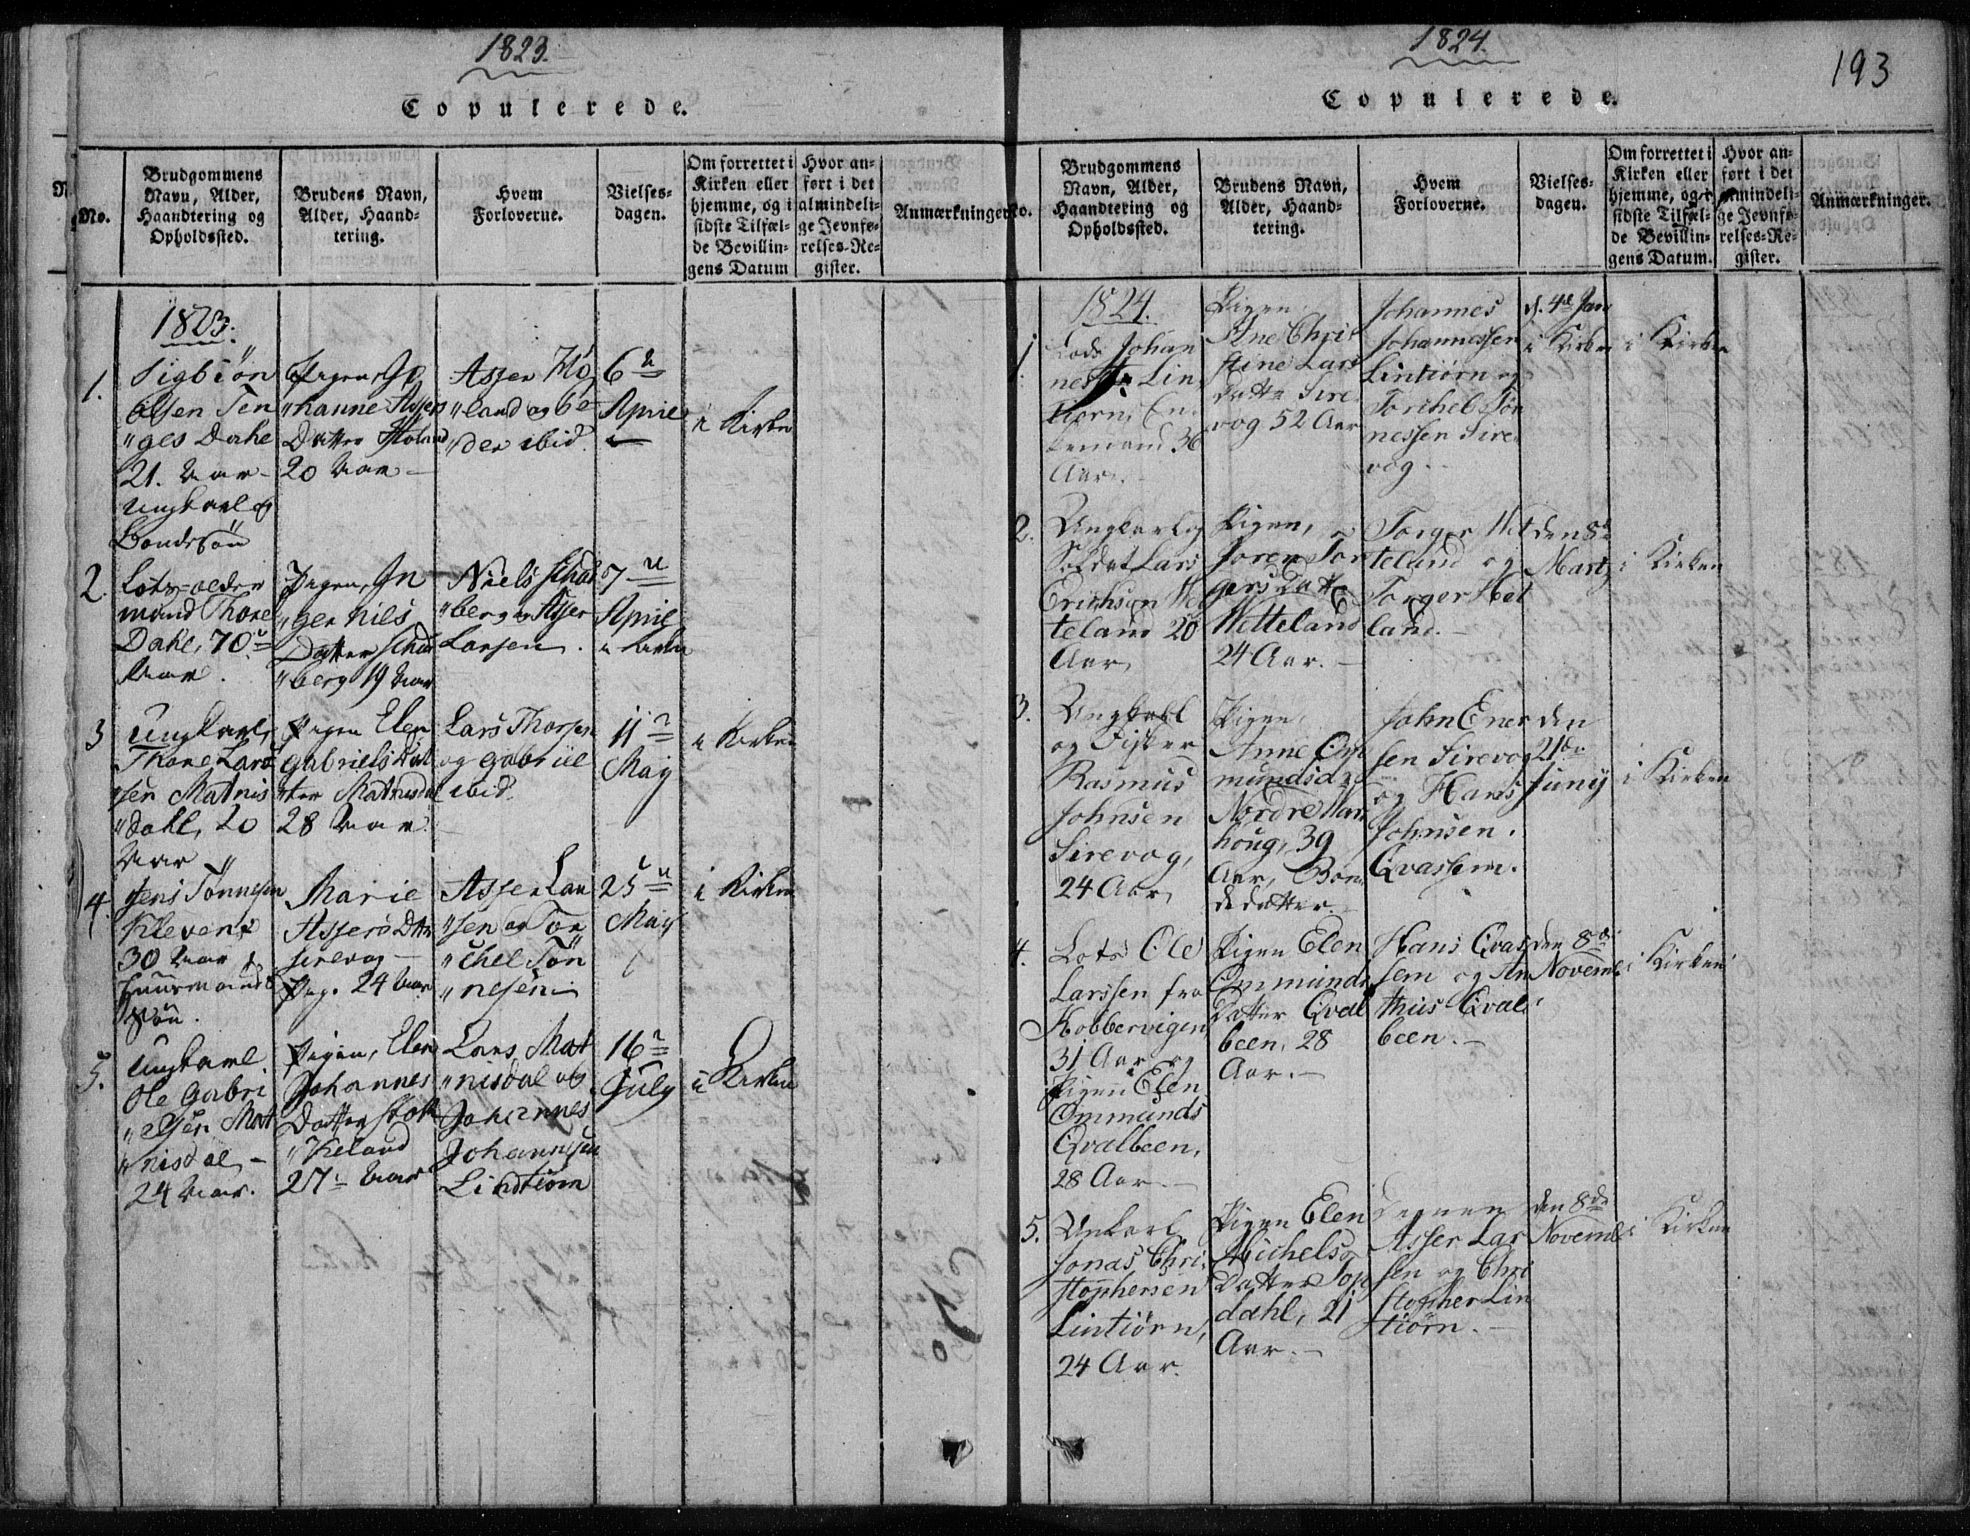 1823.
Copulerede.
No.
Brudgommens
Navn, Alder,
Haandtering og
Opholdssted.
Brudens Navn,
Alder, Haand-
tering.
Hvem
Forloverne.
Vielses-
dagen.
Om forrettet i
Kirken eller
hjemme, og i
sidste Tilfæl-
de Bevillin-
gens Datum
Hvor an-
ført i det
almindeli-
ge Jevnfø-
relses-Re-
gister.
Anmærkninger.
1823.
1.
Sigbiön
Olsen Ten
"ges Dahl
21. Aar
Ungkarl og
Bondesön
Pigen Jo
"hanne Assers
Datter
20 Aar
Asser
"land og
"der ibid.
6te
April
i Kirken
2.
Lots-older
mand Thore
Dahl, 70
Aar.
Pigen, In
"ger Niels
Datter Schad
"berg 19 Aar
Niels Schad
"berg og Asser
Larsen.
7
April
i Kirken
3
Ungkarl,
Thore Lars
"sen Matnis
"dahl, 20
Aar
Pigen Elen
Gabriels Dat
"ter Mathisdal
28 Aar.
Lars Thorsen
og Gabriel
ibid.
11
May
i Kirken
4.
Jens Tönnesen
Klevene
30 Aar
Huusmands
sön.
Marie
Assers Dtr
Sirevog
Pig. 24 Aar
Asser Lar
"sen og Tor
"chel Tön
"nesen
25
May
i Kirken
5.
Ungkarl
Ole Gabri
"elsen Mat
"nisdal
24 Aar.
Pigen, Elen
Johannes
Datter Stok
"keland
27 Aar
Lars Mat
"nisdal og
Johannes
Johannesen
Lindtiörn
16
July
i Kirken
1824.
193
Copulerede.
No.
Brudgommens
Navn, Alder,
Haandtering og
Opholdssted.
Brudens Navn,
Alder, Haand-
tering.
Hvem
Forloverne.
Vielses-
dagen.
Om forrettet i
Kirken eller
hjemme, og i
sidste Tilfæl-
de Bevillin-
gens Datum.
Hvor an-
ført i det
almindeli-
ge Jevnfø-
relses-Re-
gister.
Anmærkninger.
1824.
1.
Lods Johan
nes Lin
tiörn, En
kemand 36
Aar.
Pigen
Ane Chri
stine Lars
Datter Sire
vog 52 Aar
Johannes
Johannessen
Lintiörn og
Torchel Tön
nessen Sire
vog.
d. 4de Jan
i Kirken i Kirken
2.
Ungkarl og
Soldat Lars
Erichsen Vet
teland 20
Aar
Pigen,
Soren Tor
gers Datter
Wetteland
24 Aar.
Torger Wet
teland og
Torger Het
land.
den 8de
Martz
i Kirken
3.
Ungkarl
og Fisker
Rasmus
Johnsen
Sirevog,
24 Aar
Pigen,
Anne Om
mundsdtr
Nordre Var
houg, 39
Aar, Bon
dedatter.
John Ener
sen Sirevog
og Hans
Johnsen
Qvassem.
den
21de
Junij
i Kirken
4.
Lots Ole
Larssen fra
Kobbervigen
31 Aar og
Pigen Elen
Ommunds
Qvalbeen,
28 Aar.
Pigen Elen
Ommunds
Datter Qval
been, 28
Aar.
Hans Qvas
sem og An
thus Qval
been.
den 8de
Novemb.
i Kirken
5.
Unkarl
Jonas Chri
stophersen
Lintiörn,
24 Aar.
Pigen Elen
Michels
Datter Jop
dahl, 21
Aar.
Degnen
Asser Lar
sen og Chri
stopher Lin
tiörn.
den 8de
Novemb.
i Kirken